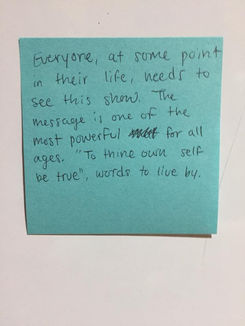 Everyone, at some point
in their life, needs to
see this show. The
message is one of the
most powerful for all
ages. "To thine own self
be true", words to live by.